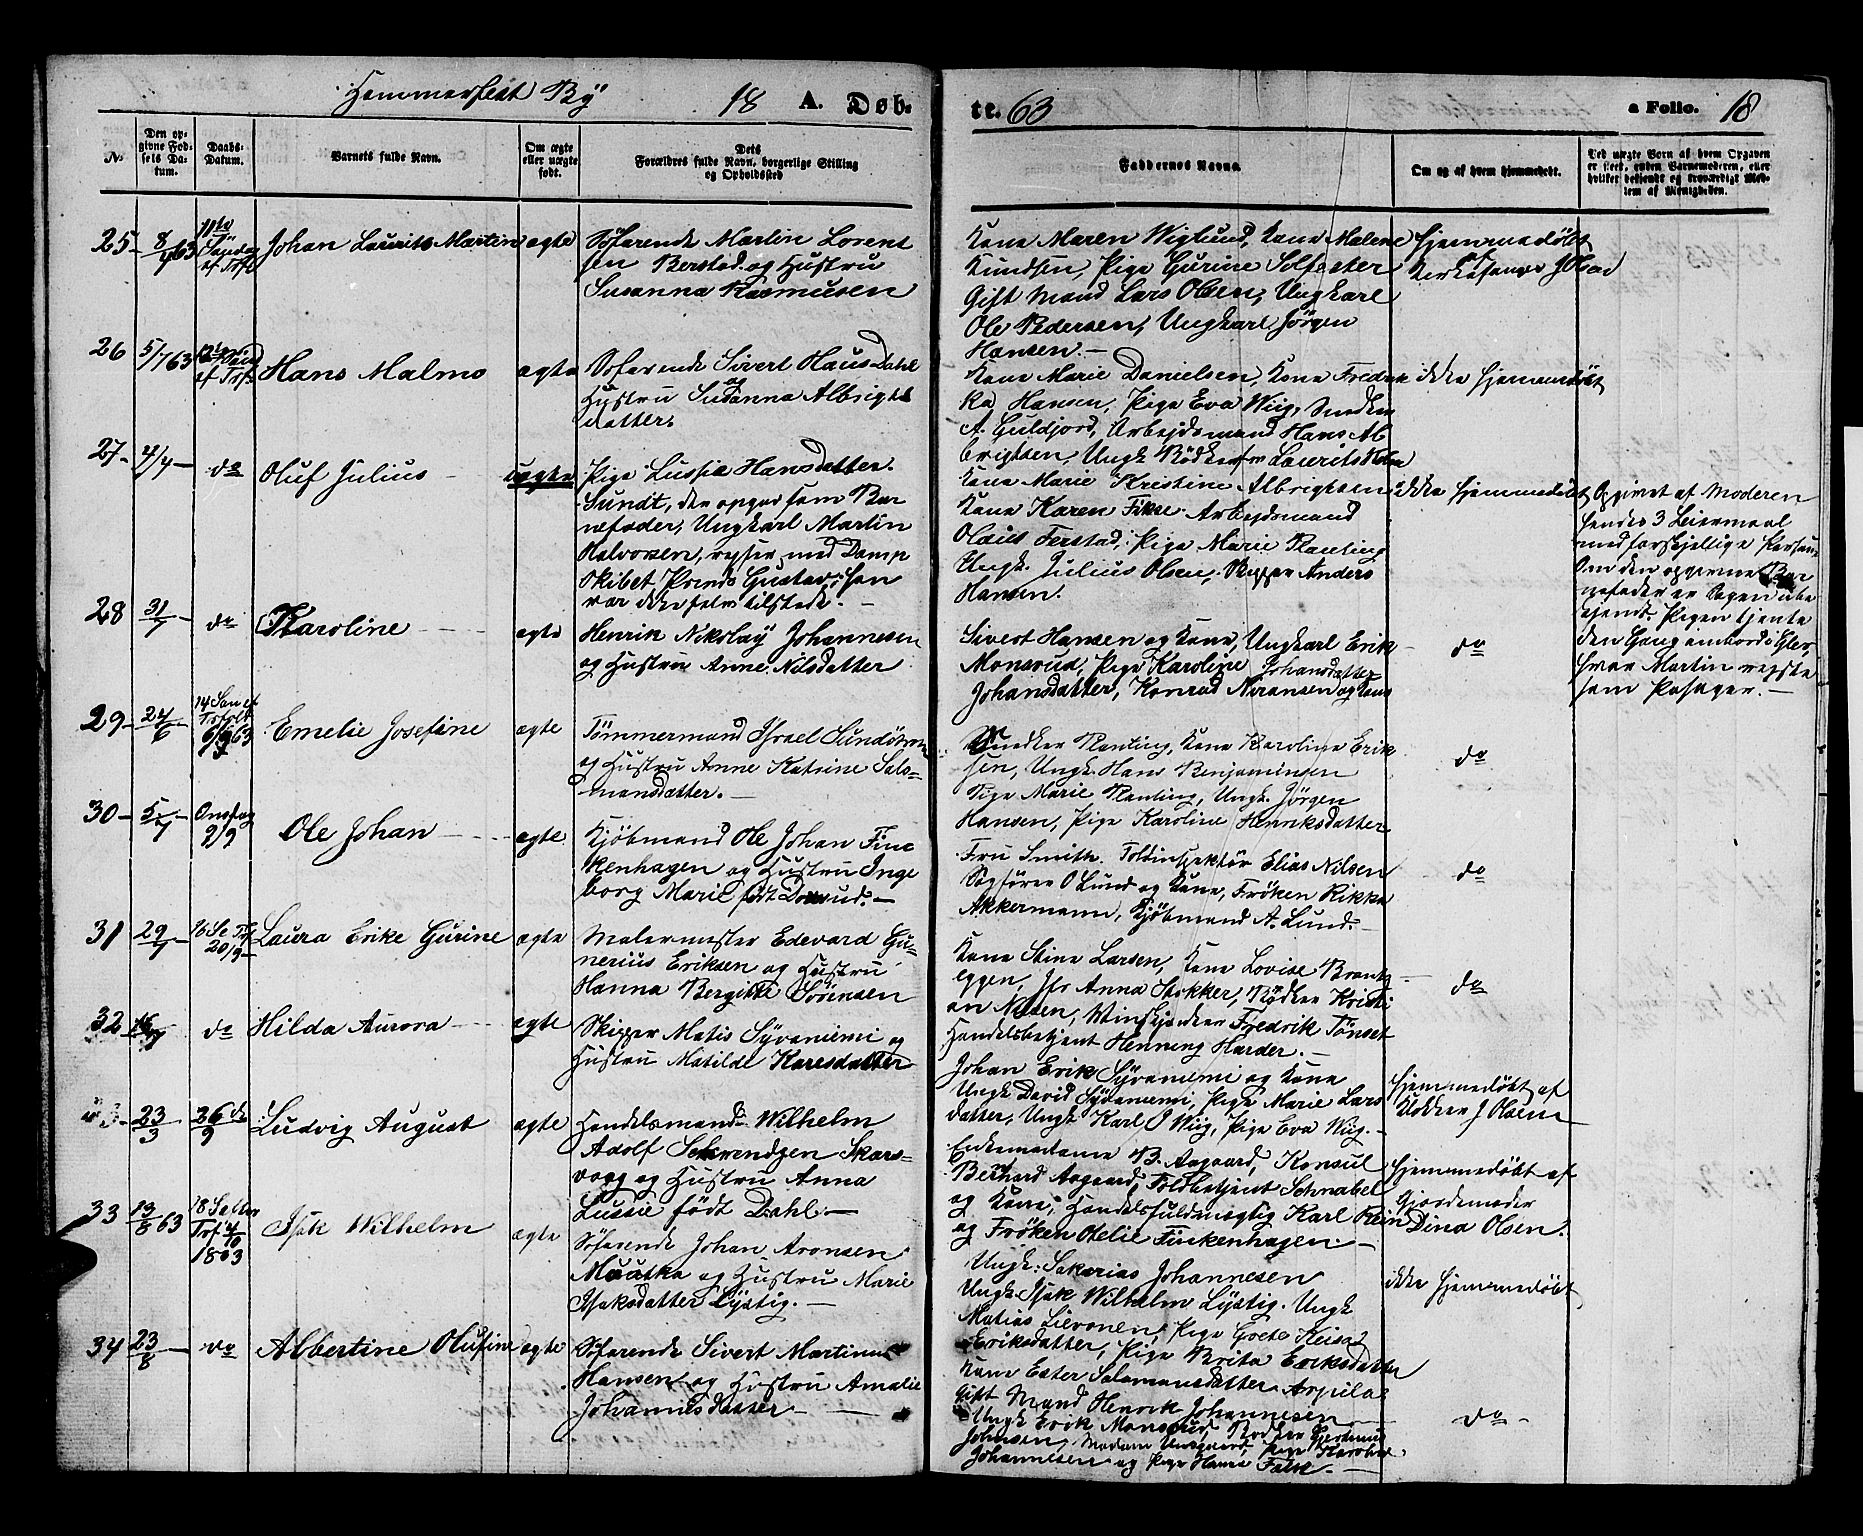 Hammerfest By 18 A. Døb-
te. 63 a Folio. 18
No. Den op- givne Fød- sels Da- tum. Daabs- Datum. Barnets fulde Navn. Om ægte eller uægte født. Dets Forældres fulde Navn, borgerlige Stilling og Opholdssted
Faddernes Navne. Om og af hvem hjemmedøbt. Ved uægte Børn af hvem Opgaven er skeet, enten Barnemoderen, eller hvilket bekjendt og troværdigt Med- lem af Menigheden.
25 - 8/7 63 11te Søndag ef Trf. Johan Laurits Martin ægte Søfarende Martin Lorent
sen Berstad og Hustru
Susanna Rasmusen
Kone Maren Wiglund, Kone Malene
Kundsen, Pige Gurine Solfester
Gift Mand Lars Olsen, Ungkarl
Ole Pedersen, Ungkarl Jørgen
Hansen. —
hjemmedøbt
af
Kirkesanger J Olsen
26 5/7 63 12te Sønd ef Trf. Hans Malmo ægte Søfarende Sivert Haus Dahl
og
Hustru Susanna Albrigts
datter.
Kone Marie Danielsen, Kone Fredrik
ka Hansen, Pige Eva Wiig, Snedker
A. Guldjord, Arbejdsmand Hans Al
brigtsen, Ungk Bødker Laurits Holm
ikke hjemmedøbt
27 - 4/4 — do Oluf Julius — uægte Pige Lussie Hansdatter
Sundt, der opgav som Bar
nefader, Ungkarl Martin
Halvorsen, rejser med Damp
skibet Prinds Gustav; han
var ikke selv tilstede. —
Kone Marie Kristine Albrigtsen
Kone Karen Fikse. Arbejdsmand
Olaus Ferstad, Pige Marie Planting
Ungk. Julius Olsen, Skipper Anders
Hansen.
ikke hjemmedøbt
Opgivet af Moderen
hendes 3 Leiermaal
med forskjellige Person
Om den opgivne Bar
nefader er Sogen ube
kjendt. Pigen tjente
den Gang ombord
hvor Martin rejste
som Pasager. —
28 31/7 — do Karoline ægte Henrik Nikolay Johannesen
og Hustru Anne Nilsdatter
Sivert Hansen og Kone, Ungkarl Erik
Monsrud, Pige Karoline Johansdatter
Johansdatter, Konrad
do
29 - 24/6 — 14 Søn ef Trfolt 6/9 63 Emelie Josefine ægte Tømmermand Israel Sundstrøm
og Hustru Anne Katrine Salo-
monsdatter. —
Snedker Planting, Kone Karoline Erik
sen, Ungk. Hans Benjaminsen
Pige Marie Planting, Ungk. Jørgen
Hansen, Pige Karoline Henriksdatter
do
30 - 5/7 — Onsdag 9/9 Ole Johan ægte Kjøbmand Ole Johan Finc
kenhagen og Hustru Inge
borg Marie født —
Fru Smith. Toldinspektør Elias Nilsen
Sagfører O Lund og Kone, Frøken Rikka
Akkermann, Kjøbmand A. Lund. —
do
31 29/7 — 16 Sø Trf 20/9 — Laura Erike Gurine ægte Malermester Edevard Gu-
nerius Eriksen og Hustru
Hanna Bergitte Sørensen
Kone Stine Larsen, Kone Lovise Brant
eggen, Jfr Anna Stokker, Bødker Kristi
an Nilsen, Fredrik Tønset
Handelsbetjent Henning Harder. —
do
32 do Hilda Aurora — ægte Skipper Matis Syvaniemi og
Hustru Matilde Karesdatter
Johan Erik Syvaniemi og Kone
Ungk David Syvaniemi, Pige Marie Lars
datter, Ungk Karl O Wiig, Pige Eva Wiig. —
hjemmedøbt af
Klokker J Olsen
23/3 — 26 de/9 Ludvig August ægte Handelsmand Wilhelm
Adolf Schwendgen Skars-
vaag og Hustru Anna
Lussie født Dahl —
Enkemadame B. Aagaard, Konsul
Bernhard Aagaard, Toldbetjent Schnabel
og Kone, Handelsfuldmægtig Karl Klein
og Frøken Otelie Finkenhagen. —
hjemmedøbt af
Gjordemoder
Dina Olsen.
33 13/8 63 18 Søn efter Trf 4/10 1863 Isak Wilhelm ægte Søfarende Johan Aronsen
Muotka og Hustru Marie
Isaksdatter Lystig. —
Ungk: Sakarias Johannesen
Ungk. Isak Wilhelm Lystig. Ungk
Matias Lievonen, Pige Grete Keisa
Eriksdatter, Pige Brita Eriksdatter
ikke hjemmedøbt
34 23/8 — do Albertine Olufine ægte Søfarende Sivert Martinus
Hansen og Hustru Amalie
Johannesdatter —
Kone Ester Salamonsdatter Arpela
Gift Mand Henrik Johannesen
Ungk Erik Monsrud, Bødker
Johnsen, Madam Pige Karoline
Johannesen og Pige Hanna Falk. —
do -